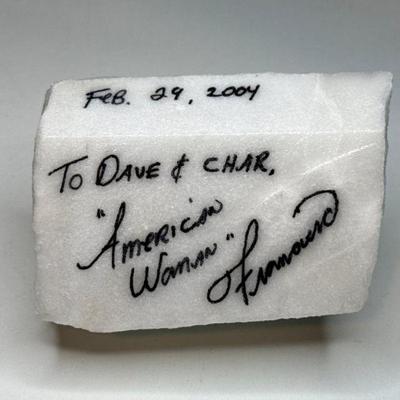 Feb. 29, 2004
To Dave & Char,
"American
Woman"